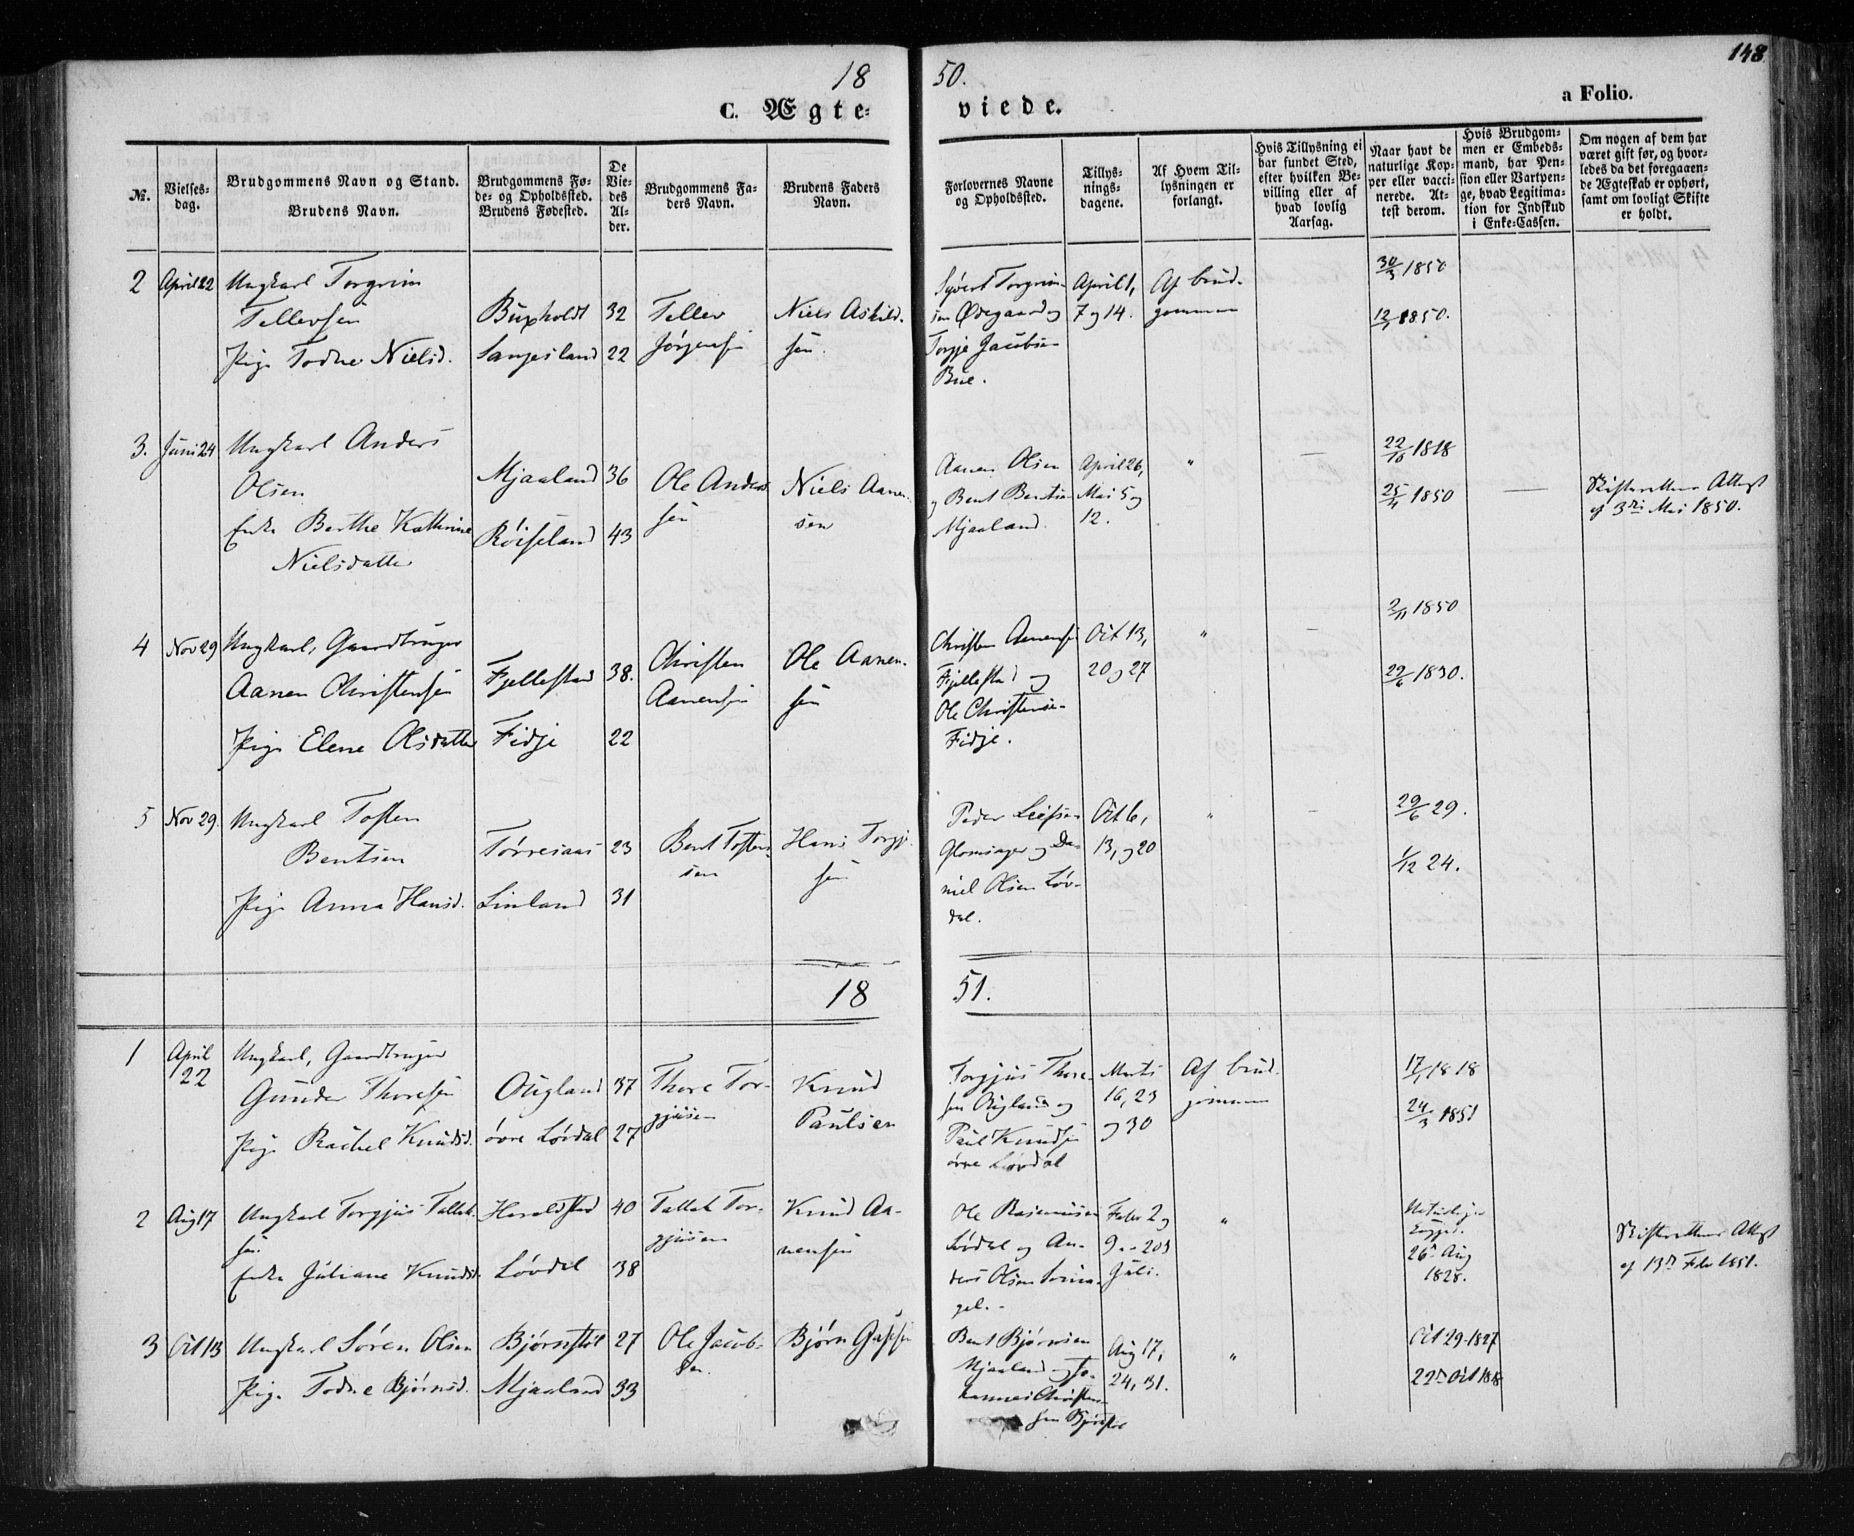 148
18 50.
C. Ægte- viede. a Folio.
№.
Vielses-
dag.
Brudgommens Navn og Stand.
Brudens Navn.
Brudgommens Fø-
de- og Opholdssted.
Brudens Fødested.
De
Vie-
des
Al-
der.
Brudgommens Fa-
ders Navn.
Brudens Faders
Navn.
Forlovernes Navne
og Opholdssted.
Tillys-
nings-
dagene.
Af Hvem Til-
lysningen er
forlangt.
Hvis Tillysning ei
har fundet Sted,
efter hvilken Be-
villing eller af
hvad lovlig
Aarsag.
Naar havt de
naturlige Kop-
per eller vacci-
nerede. At-
test derom.
Hvis Brudgom-
men er Embeds-
mand, har Pen-
sion eller Vartpen-
ge, hvad Legitima-
tion for Indskud
i Enke-Cassen.
Om nogen af dem har
været gift før, og hvor-
ledes da det foregaaen-
de Ægteskab er ophørt,
samt om lovligt Skifte
er holdt.
2 April 22 Ungkarl Torgrim
Tellevsen Buxholdt 32
Pige Todne Nielsd. Sangesland 22
Tellev
Jørgensen
Niels Askild-
sen.
Syvert Torgrim-
sen Ødegaard og
Torgje Jacobsen
Bue.
April 1,
7 og 14.
Af brud-
gommen
30/3 1850
12/3 1850.
3. Juni 24 Ungkarl Anders
Olsen Mjaaland 36
Enke Berthe Kathrine
Nielsdatter Røiseland 43
Ole Anders
sen
Niels Aanen-
sen
Aanen Olsen
og Bent Bentsen
Mjaaland.
April 26,
Mai 5 og
12.
"
—
22/10 1818
25/4 1850
—
Skifterettens Attest
af 3die Mai 1850.
4 Nov 29 Ungkarl, Gaardbruger
Aanen Christensen Fjellestad 38.
Pige Elene Olsdatter Fidje 22
Christen
Aanensen
Ole Aanen-
sen
Christen Aanensen
Fjellestad og
Ole Christense-
Fidje.
Oct 13,
20 og 27
"
—
2/11 1850
29/6 1830.
5 Nov 29. Ungkarl Tosten
Bentsen Tørresaas 23
Pige Anna Hansd. Linland 31
Bent Tosten-
sen
Hans Torgje-
sen
Peder Leifsen
Glomsager og Da-
niel Olsen Løv-
dal.
Oct 6,
13, og 20
"
—
29/6 29.
1/12 24.
18 51.
1 April
22
Ungkarl, Gaardbruger
Gunder Thoresen Øugland 37
Pige Rachel Knudsd. øvre Løvdal 27
Thore Tor-
gjusen
Knud
Paulsen
Torgjus Thore-
sen Øugland og
Paul Knudsen
øvre Løvdal
Marts
16, 23
og 30
Af brud-
gommen
17/1 1818
24/3 1851
2 Aug 17 Ungkarl Torgjus Tallak-
sen. Haraldstad 40
Enke Juliane Knudsd. Løvdal 38
Tallak Tor-
gjusen
Knud Aa-
nensen
Ole Rasmussen
Løvdal og An-
ders Olsen
gel.
Febr 2 og
9 - 20
Juli.
"
Naturlige
26de Aug
1828.
Skifterettens Attest
af 13de Febr 1851.
3 Oct 13 Ungkarl Søren Olsen Bjørnstøl 27
Pige Todne Bjørnsd. Mjaaland 33
Ole Jacob-
sen.
Bjørn
Bent Bjørnsen
Mjaaland og Jo-
hannes Christen-
sen
Aug 17,
24, 31.
"
Oct 29-1827
22de Oct 1818